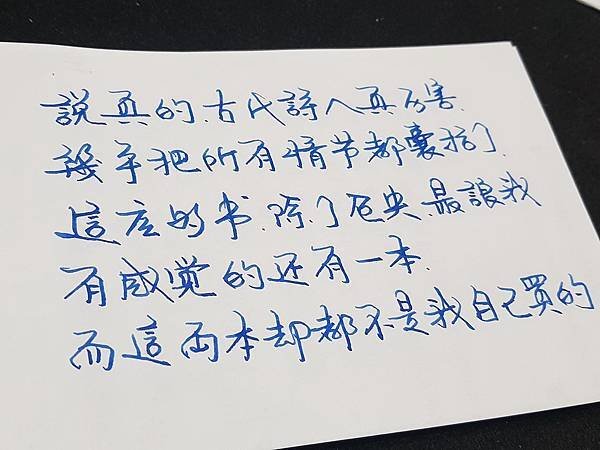 說真的.古代詩人真历害.
幾乎把所有情节都囊括了.
這应的书.除了 最讓我
有感觉的还有一本.
而這両本却都不是我自己買的